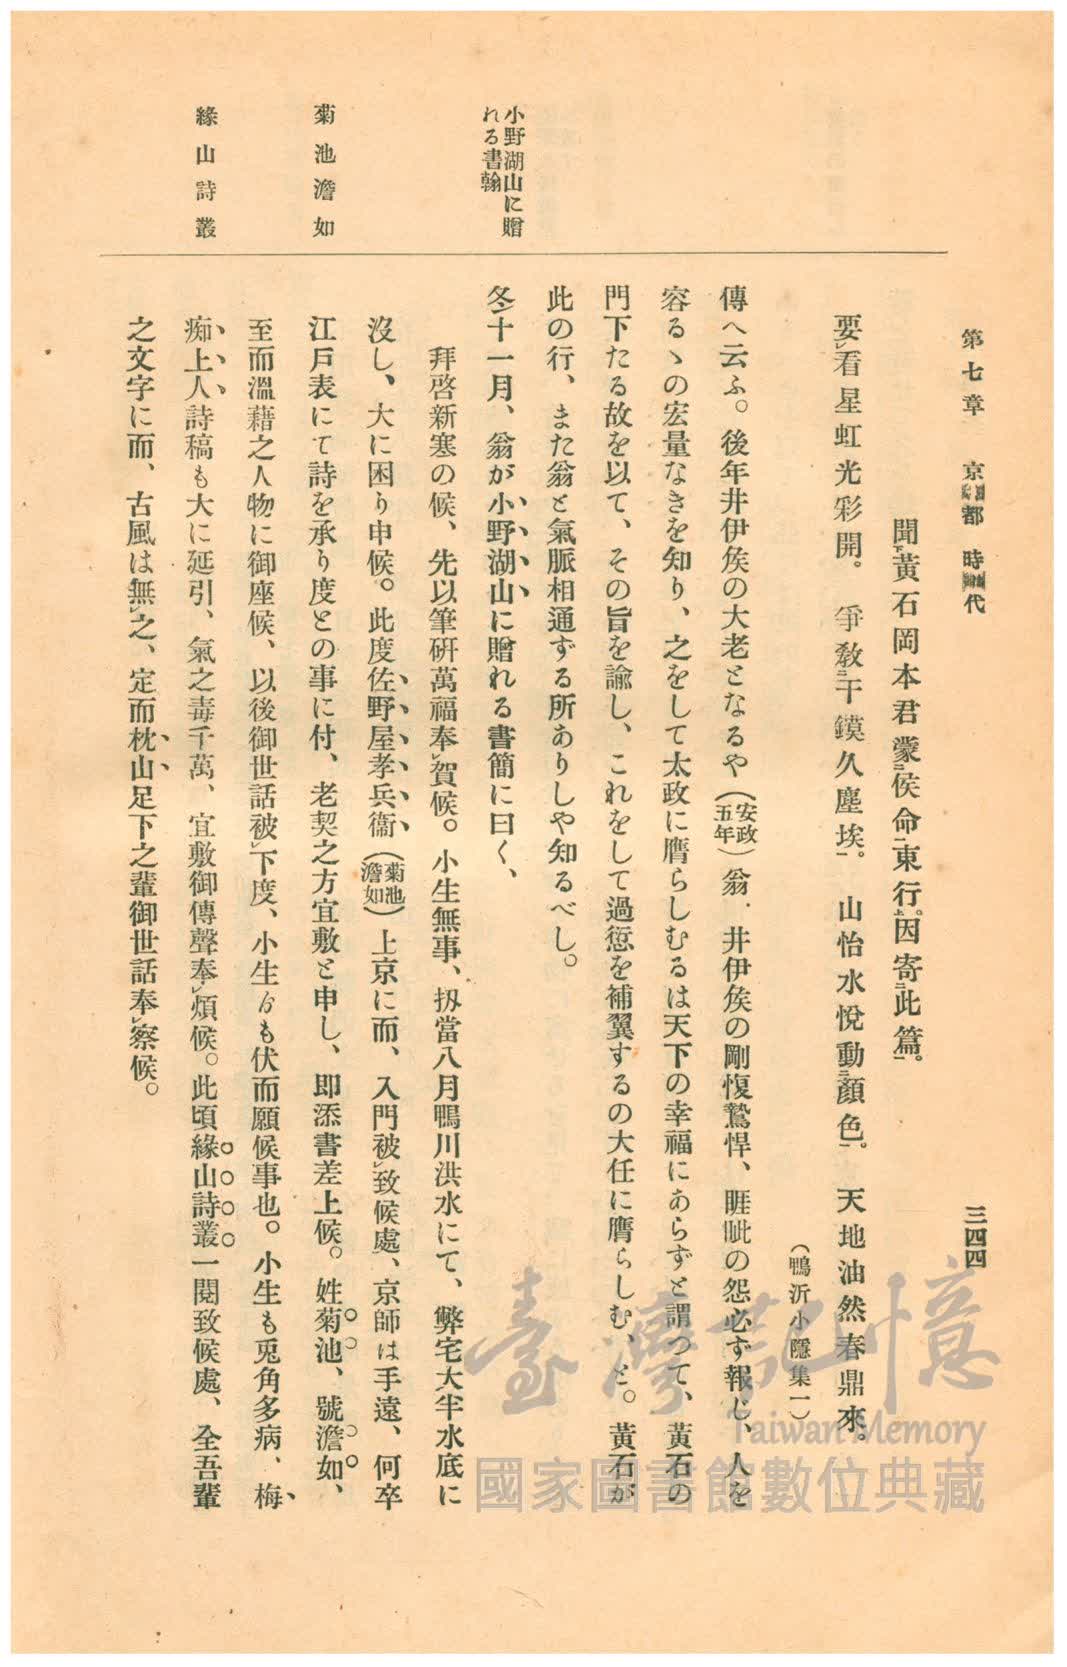 第七章　京都時代
三四四
聞黃石岡本君蒙侯命東行。因寄此篇。
要看星虹光彩開。爭教干鏌久塵埃。山怡水悅動顏色。天地油然春鼎來。
（鴨沂小隱集一）
傳へ云ふ。後年井伊矦の大老となるや（安政五年）翁、井伊矦の剛愎鷙悍、睚眦の怨必ず報じ、人を
容るゝの宏量なきを知り、之をして太政に膺らしむるは天下の幸福にあらずと謂つて、黃石の
門下たる故を以て、その旨を諭し、これをして過愆を補翼するの大任に膺らしむ、と。黃石が
此の行、また翁と氣脈相通ずる所ありしや知るべし。
小野湖山に贈れる書翰
冬十一月、翁が小野湖山に贈れる書簡に曰く、
拜啓新寒の候、先以筆硏萬福奉賀候。小生無事、扨當八月鴨川洪水にて、弊宅大半水底に
沒し、大に困り申候。此度佐野屋孝兵衞（菊池澹如）上京に而、入門被致候處、京師は手遠、何卒
菊池澹如
江戶表にて詩を承り度との事に付、老契之方宜敷と申し、卽添書差上候。姓菊池、號澹如、
至而溫藉之人物に御座候、以後御世話被下度、小生ゟも伏而願候事也。小生も兎角多病、梅
緣山詩叢
痴上人詩稿も大に延引、氣之毒千萬、宜敷御傳聲奉煩候。此頃緣山詩叢一閱致候處、全吾輩
之文字に而、古風は無之、定而枕山足下之輩御世話奉察候。
臺灣記憶
Taiwan Memory
國家圖書館數位典藏